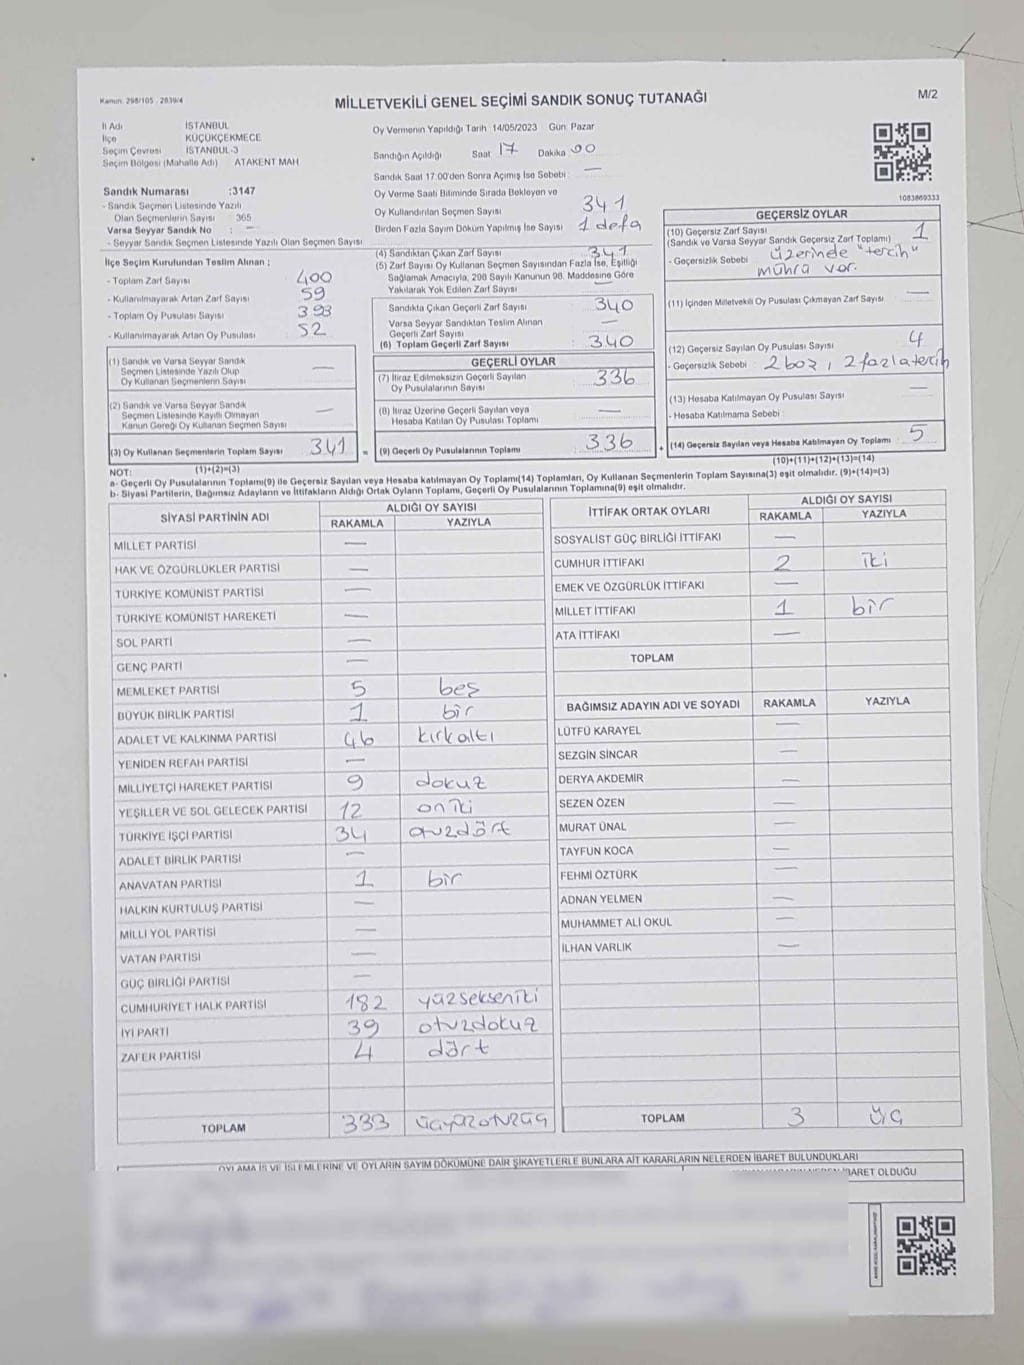 Kanun: 298/105 , 2839/4
MİLLETVEKİLİ GENEL SEÇİMİ SANDIK SONUÇ TUTANAĞI
M/2
İl Adı İSTANBUL
İlçe KÜÇÜKÇEKMECE
Seçim Çevresi İSTANBUL-3
Seçim Bölgesi (Mahalle Adı) ATAKENT MAH
Sandık Numarası :3147
- Sandık Seçmen Listesinde Yazılı
Olan Seçmenlerin Sayısı : 365
Varsa Seyyar Sandık No : —
- Seyyar Sandık Seçmen Listesinde Yazılı Olan Seçmen Sayısı
İlçe Seçim Kurulundan Teslim Alınan ;
- Toplam Zarf Sayısı 400
- Kullanılmayarak Artan Zarf Sayısı 59
- Toplam Oy Pusulası Sayısı 393
- Kullanılmayarak Artan Oy Pusulası 52
(1) Sandık ve Varsa Seyyar Sandık
Seçmen Listesinde Yazılı Olup
Oy Kullanan Seçmenlerin Sayısı —
(2) Sandık ve Varsa Seyyar Sandık
Seçmen Listesinde Kayıtlı Olmayan
Kanun Gereği Oy Kullanan Seçmen Sayısı —
(3) Oy Kullanan Seçmenlerin Toplam Sayısı 341
(1)+(2)=(3)
Oy Vermenin Yapıldığı Tarih 14/05/2023 Gün: Pazar
Sandığın Açıldığı Saat 17 Dakika 00
Sandık Saat 17:00'den Sonra Açımış İse Sebebi : —
Oy Verme Saati Bitiminde Sırada Bekleyen ve
Oy Kullandırılan Seçmen Sayısı 341
Birden Fazla Sayım Döküm Yapılmış İse Sayısı 1 defa
(4) Sandıktan Çıkan Zarf Sayısı 341
(5) Zarf Sayısı Oy Kullanan Seçmen Sayısından Fazla İse, Eşitliği
Sağlamak Amacıyla, 298 Sayılı Kanunun 98. Maddesine Göre
Yakılarak Yok Edilen Zarf Sayısı —
Sandıkta Çıkan Geçerli Zarf Sayısı 340
Varsa Seyyar Sandıktan Teslim Alınan
Geçerli Zarf Sayısı —
(6) Toplam Geçerli Zarf Sayısı 340
GEÇERLİ OYLAR
(7) İtiraz Edilmeksizin Geçerli Sayılan
Oy Pusulalarının Sayısı 336
(8) İtiraz Üzerine Geçerli Sayılan veya
Hesaba Katılan Oy Pusulası Toplamı —
= (9) Geçerli Oy Pusulalarının Toplamı 336
1083869333
GEÇERSİZ OYLAR
(10) Geçersiz Zarf Sayısı 1
(Sandık ve Varsa Seyyar Sandık Geçersiz Zarf Toplamı)
- Geçersizlik Sebebi : üzerinde "tercih"
mührü var.
(11) İçinden Milletvekili Oy Pusulası Çıkmayan Zarf Sayısı —
(12) Geçersiz Sayılan Oy Pusulası Sayısı 4
- Geçersizlik Sebebi : 2 boş, 2 fazla tercih
(13) Hesaba Katılmayan Oy Pusulası Sayısı —
- Hesaba Katılmama Sebebi :
+ (14) Geçersiz Sayılan veya Hesaba Katılmayan Oy Toplamı 5
(10)+(11)+(12)+(13)=(14)
NOT:
a- Geçerli Oy Pusulalarının Toplamı(9) ile Geçersiz Sayılan veya Hesaba katılmayan Oy Toplamı(14) Toplamları, Oy Kullanan Seçmenlerin Toplam Sayısına(3) eşit olmalıdır. (9)+(14)=(3)
b- Siyasi Partilerin, Bağımsız Adayların ve İttifakların Aldığı Ortak Oyların Toplamı, Geçerli Oy Pusulalarının Toplamına(9) eşit olmalıdır.
SİYASİ PARTİNİN ADI ALDIĞI OY SAYISI
RAKAMLA YAZIYLA
MİLLET PARTİSİ —
HAK VE ÖZGÜRLÜKLER PARTİSİ —
TÜRKİYE KOMÜNİST PARTİSİ —
TÜRKİYE KOMÜNİST HAREKETİ —
SOL PARTİ —
GENÇ PARTİ —
MEMLEKET PARTİSİ 5 beş
BÜYÜK BİRLİK PARTİSİ 1 bir
ADALET VE KALKINMA PARTİSİ 46 kırkaltı
YENİDEN REFAH PARTİSİ —
MİLLİYETÇİ HAREKET PARTİSİ 9 dokuz
YEŞİLLER VE SOL GELECEK PARTİSİ 12 oniki
TÜRKİYE İŞÇİ PARTİSİ 34 otuzdört
ADALET BİRLİK PARTİSİ —
ANAVATAN PARTİSİ 1 bir
HALKIN KURTULUŞ PARTİSİ —
MİLLİ YOL PARTİSİ —
VATAN PARTİSİ —
GÜÇ BİRLİĞİ PARTİSİ —
CUMHURİYET HALK PARTİSİ 182 yüzsekseniki
İYİ PARTİ 39 otuzdokuz
ZAFER PARTİSİ 4 dört
TOPLAM 333 üçyüzotuzüç
İTTİFAK ORTAK OYLARI ALDIĞI OY SAYISI
RAKAMLA YAZIYLA
SOSYALİST GÜÇ BİRLİĞİ İTTİFAKI —
CUMHUR İTTİFAKI 2 iki
EMEK VE ÖZGÜRLÜK İTTİFAKI —
MİLLET İTTİFAKI 1 bir
ATA İTTİFAKI —
TOPLAM
BAĞIMSIZ ADAYIN ADI VE SOYADI RAKAMLA YAZIYLA
LÜTFÜ KARAYEL —
SEZGİN SİNCAR —
DERYA AKDEMİR —
SEZEN ÖZEN —
MURAT ÜNAL —
TAYFUN KOCA —
FEHMİ ÖZTÜRK —
ADNAN YELMEN —
MUHAMMET ALİ OKUL —
İLHAN VARLIK —
TOPLAM 3 üç
OYLAMA İŞ VE İŞLEMLERİNE VE OYLARIN SAYIM DÖKÜMÜNE DAİR ŞİKAYETLERLE BUNLARA AİT KARARLARIN NELERDEN İBARET BULUNDUKLARI
İBARET OLDUĞU